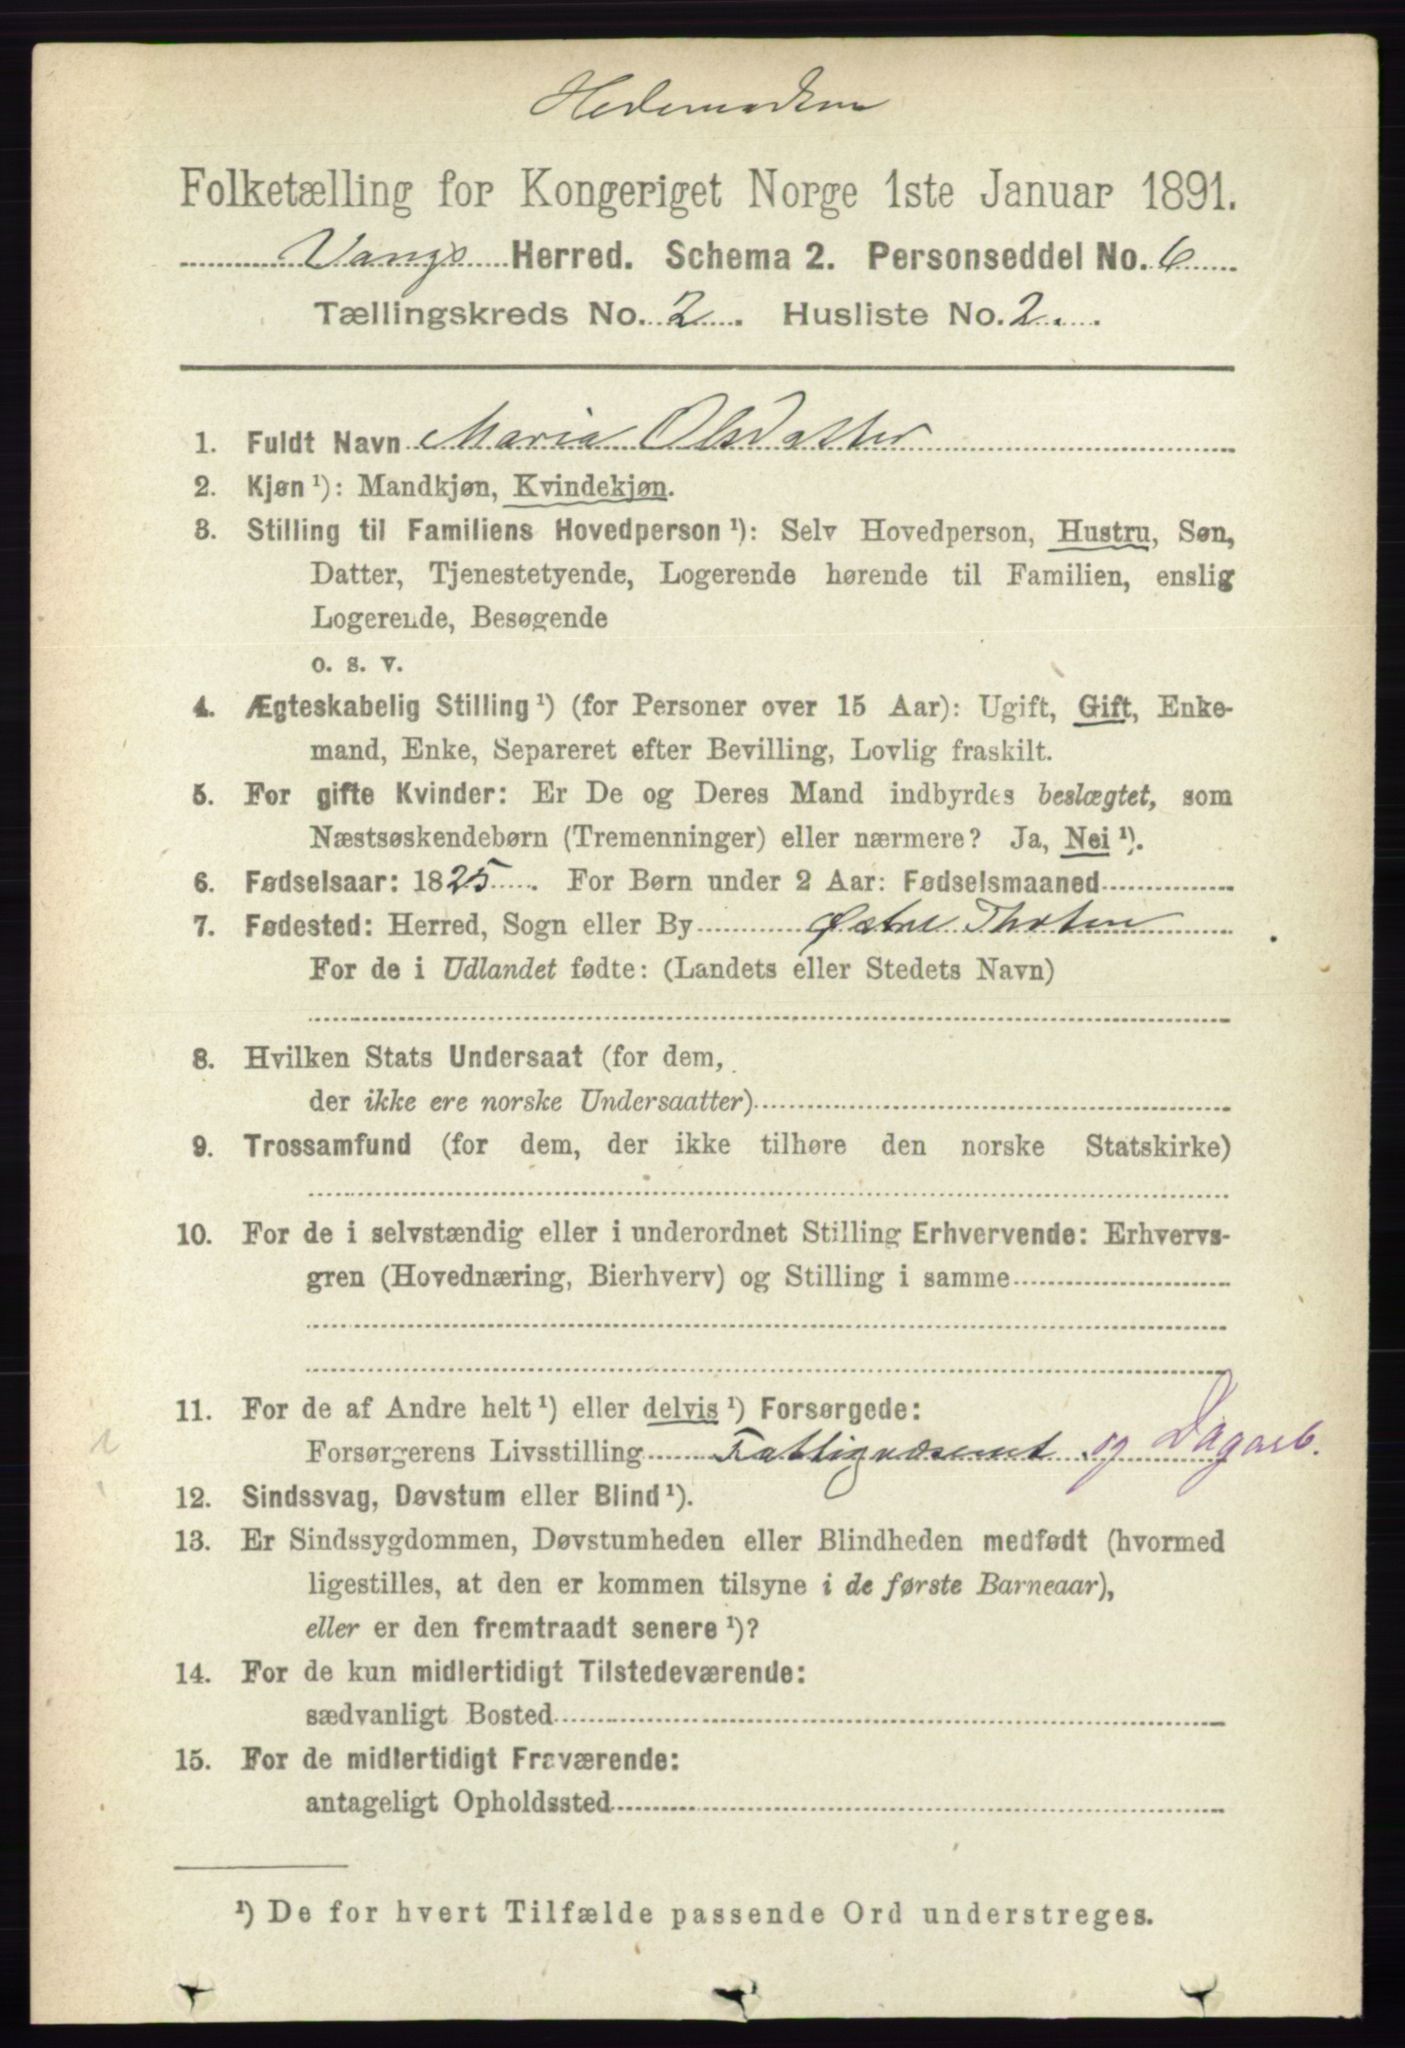 Hedemarken
Folketælling for Kongeriget Norge 1ste Januar 1891.
Vangs Herred. Schema 2. Personseddel No. 6
Tællingskreds No. 2. Husliste No. 2.
1. Fuldt Navn Maria Olsdatter
2. Kjøn ¹): Mandkjøn, Kvindekjøn.
3. Stilling til Familiens Hovedperson ¹): Selv Hovedperson, Hustru, Søn,
Datter, Tjenestetyende, Logerende hørende til Familien, enslig
Logerende, Besøgende
o. s. v.
4. Ægteskabelig Stilling ¹) (for Personer over 15 Aar): Ugift, Gift, Enke-
mand, Enke, Separeret efter Bevilling, Lovlig fraskilt.
5. For gifte Kvinder: Er De og Deres Mand indbyrdes beslægtet, som
Næstsøskendebørn (Tremenninger) eller nærmere? Ja, Nei ¹).
6. Fødselsaar: 1825. For Børn under 2 Aar: Fødselsmaaned
7. Fødested: Herred, Sogn eller By Østre Thoten
For de i Udlandet fødte: (Landets eller Stedets Navn)
8. Hvilken Stats Undersaat (for dem,
der ikke ere norske Undersaatter)
9. Trossamfund (for dem, der ikke tilhøre den norske Statskirke)
10. For de i selvstændig eller i underordnet Stilling Erhvervende: Erhvervs-
gren (Hovednæring, Bierhverv) og Stilling i samme
11. For de af Andre helt ¹) eller delvis ¹) Forsørgede:
Forsørgerens Livsstilling Fattigvæsenet og Dagarb.
12. Sindssvag, Døvstum eller Blind ¹).
13. Er Sindssygdommen, Døvstumheden eller Blindheden medfødt (hvormed
ligestilles, at den er kommen tilsyne i de første Barneaar),
eller er den fremtraadt senere ¹)?
14. For de kun midlertidigt Tilstedeværende:
sædvanligt Bosted
15. For de midlertidigt Fraværende:
antageligt Opholdssted
¹) De for hvert Tilfælde passende Ord understreges.